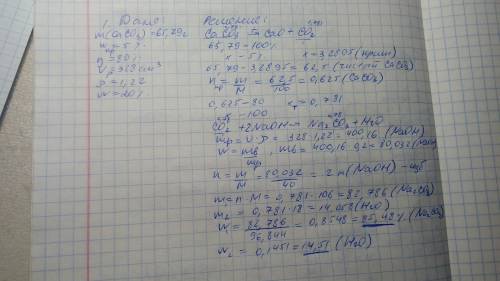 1. Дано:
m(CaCO3)=65,79г
wпр=5%
n=80%
V=328см³
p=1,22
w=20%
Решение:
0,781
CaCO3 → CaO + CO2
65,79-100%
x - 5%   x=3,2895(прим)
65,79-3,2895=62,5 (чистый CaCO3)
n = m/M = 62,5/100 = 0,625 (CaCO3)
0,625-80   x = 0,781
-100
CO2 + 2NaOH → Na2CO3 + H2O
mр = V·p = 328·1,22 = 400,16 (NaOH)
w = mв/mр , mв = 400,16·0,2 = 80,032 (NaOH)
n = m/M = 80,032/40 = 2 n (NaOH) - изб
m = n·M = 0,781·106 = 82,786 (Na2CO3)
m2 = 0,781·18 = 14,058 (H2O)
w = 82,786/96,844 = 0,8548 = 85,48% (Na2CO3)
w2 = 0,1451 = 14,51 (H2O)